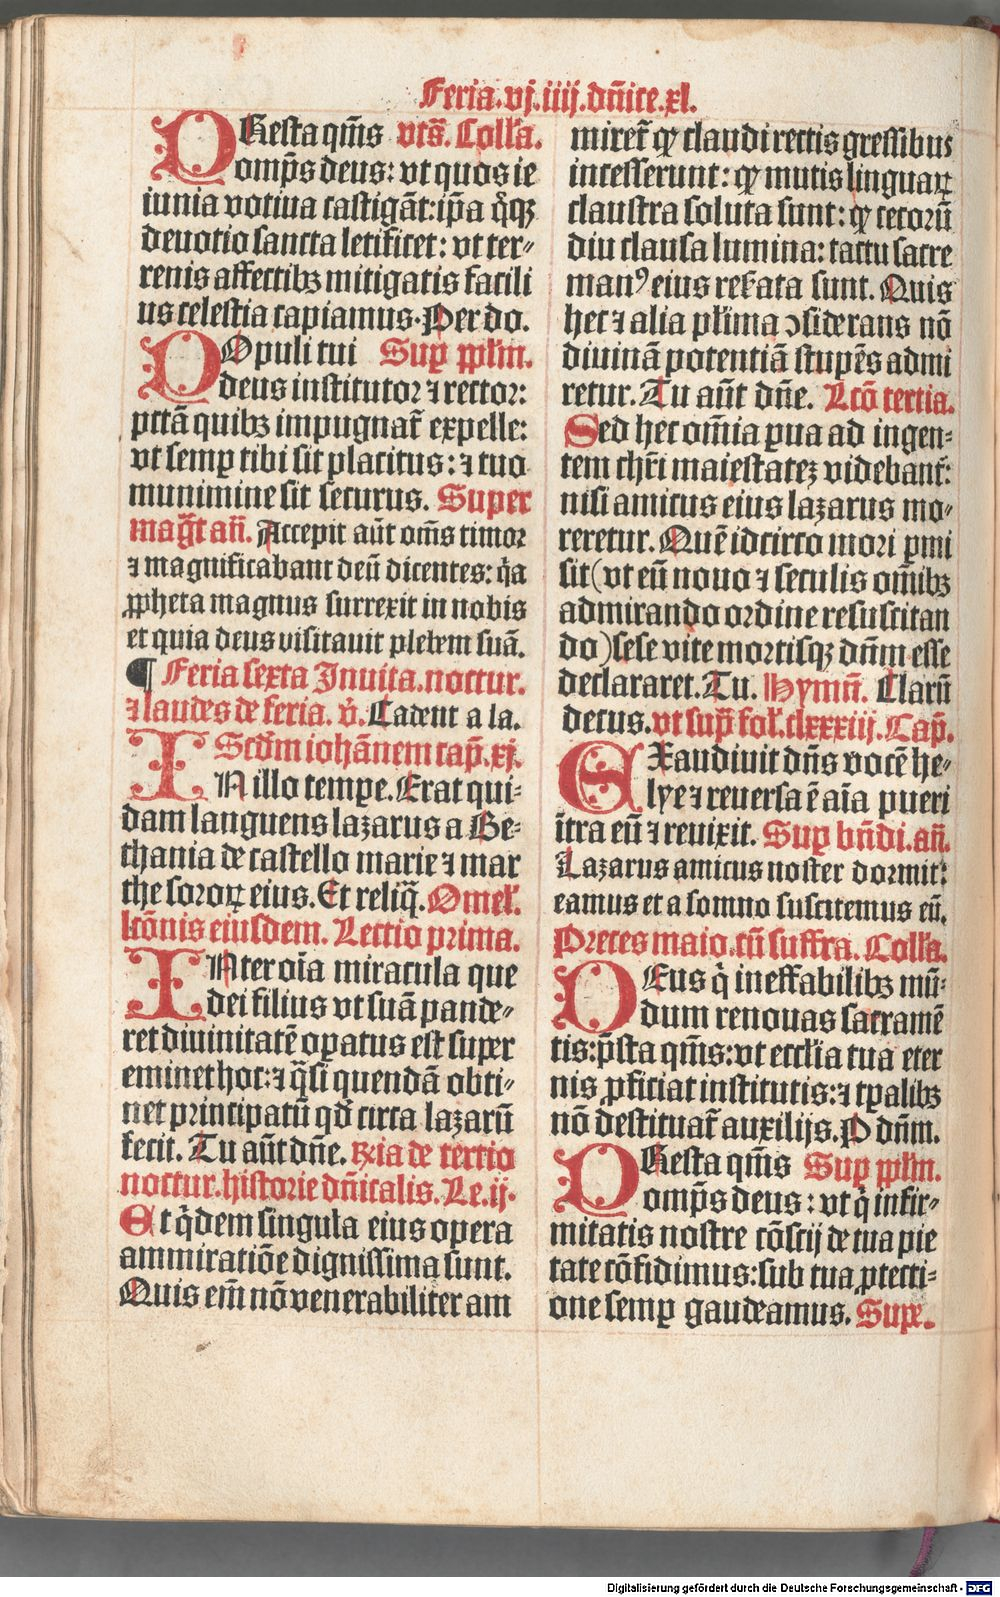 Feria.vj.iiij.dn̄ice.xl.
PResta q̄m̄s vts̄. Coll'a.
omp̄s deus: vt quos ie
iunia votiua castigāt: ip̄a q̄qꝫ
deuotio sancta letificet: vt ter-
renis affectibꝫ mitigatis facili
us celestia capiamus. Per do.
POpuli tui Supꝑ pp̄lm.
deus institutoꝛ ⁊ rectoꝛ:
pctā quibꝫ impugnat̄ expelle:
vt semꝑ tibi sit placitus: ⁊ tuo
munimine sit securus. Super
mag̃t an̄. Accepit aūt om̄s timoꝛ
⁊ magnificabant deū dicentes: q̄a
ꝓpheta magnus surrexit in nobis
et quia deus visitauit plebem suā.
¶ Feria sexta Inuita. noctur.
⁊ laudes de feria. v̄. Cadent a la.
Scd̄m iohānem cap̄. xj.
IN illo tempꝑe. Erat qui-
dam languens lazarus a Be-
thania de castello marie ⁊ mar
the soroꝝ eius. Et reliq̄. Omel'.
lc̄ōnis eiusdem. Lectio prima.
INter oīa miracula que
dei filius vt suā pande-
ret diuinitatē oꝑatus est super
eminet hoc: ⁊ q̄si quendā obti-
net principatū qd̄ circa lazarū
fecit. Tu aūt dn̄e. Rͣia de tertio
noctur. historie dn̄icalis. Le. ij.
Et q̄dem singula eius opera
ammiratiōe dignissima sunt.
Quis em̄ nō venerabiliter am
miret̄ qꝫ claudi rectis gressibus
incesserunt: qꝫ mutis linguaꝝ
claustra soluta sunt: qꝫ cecorū
diu clausa lumina: tactu sacre
manꝰ eius res̄ata sunt. Quis
hec ⁊ alia pl'ima ↄsiderans nō
diuinā potentiā stupēs admi
retur. Tu aūt dn̄e. Lcō tertia.
Sed hec om̄ia ꝑua ad ingen-
tem chr̄i maiestateꝫ videbant̄:
nisi amicus eius lazarus mo-
reretur. Quē idcirco mori ꝑmi
sit (vt eū nouo ⁊ seculis om̄ibꝫ
admirando ordine resuscitan
do) sese vite mortisqꝫ dn̄m esse
declararet. Tu. Hymn̄. Clarū
decus. vt sup̄ fol'. clxxxiij. Cap̄.
EXaudiuit dn̄s vocē he-
lye ⁊ reuersa ē aīa pueri
ītra eū ⁊ reuixit. Suꝑ bn̄di. an̄.
Lazarus amicus noster dormit:
eamus et a somno suscitemus eū.
Preces maio. cū suffra. Coll'a.
DEus q̄ ineffabilibꝫ mū-
dum renouas sacramē
tis: p̄sta q̄m̄s: vt eccl'ia tua eter
nis ꝓficiat institutis: ⁊ tꝑalibꝫ
nō destituat̄ auxilijs. P dn̄m.
PResta q̄m̄s Suꝑ pp̄lm.
omp̄s deus: vt q̄ infir-
mitatis nostre cōscij de tua pie
tate cōfidimus: sub tua ꝓtecti-
one semꝑ gaudeamus. Suꝑe.
Digitalisierung gefördert durch die Deutsche Forschungsgemeinschaft - DFG